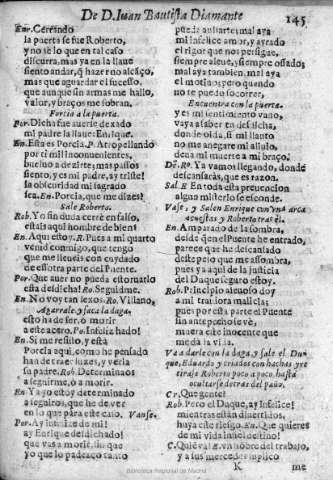 De D. Iuan Bautista Diamante 145
Enr. Cerrando
la puerta se fue Roberto,
y no sè lo que en tal caso
discurra, mas ya en la llaue
siento andar, q̃ hazer no alcãço,
mas que aguardar el sucesso,
que aunque sin armas me hallo,
valor, y braços me sobran.
Porcia a la puerta.
Por. Dicha fue auerse dexado
mi padre la llaue: Enrique.
En. Esta es Porcia. P. Atropellando
por mil inconuenientes,
bueluo a dezirte; mas passos
siento, y es mi padre, ay triste!
la obscuridad mi sagrado
sea. En. Porcia, que me dizes?
Sale Roberto.
Rob. Yo sin duda cerrè en falso,
estais aqui hombre de bien?
En. Aqui estoy. R. Pues a mi quarto
venid conmigo, que tengo
que me lleueis con cuydado
de essotra parte del Puente.
Por. Que auer no pueda estoruarlo
esta desdicha! Ro. Seguidme.
En. No voy tan lexos. Ro. Villano,
Agarrale, y saca la daga.
esto ha de ser, ò morir
a este acero. Po. Infeliz hado!
En. Si me resisto, y està
Porcia aqui, como he pensado
han de traer luzes, y verla
su padre. Rob. Determinaos
a seguirme, ò a morir.
En. Ya yo estoy determinado
a seguiros, que he de ver
en lo que pára este caso. Vanse.
Por. Ay infeliz de mi!
ay Enrique desdichado!
que vàs a morir, sin que
yo que lo padezco tanto
pueda auisarte; mal aya
mi infelice amor, y ayrado
el rigor que nos persigue,
siempre aleue, y siempre ossado;
mal aya tambien, mal aya
el motiuo, pero quando
no te puedo socorrer,
Encuentra con la puerta.
y es mi sentimiento vano,
vaya a saber mi desdicha,
donde oida, si mi llanto
no me anegare mi aliuio,
deua mi muerte a mi braço.
Dẽ. Ro. Ya vamos llegando, donde
descansaràs, que es razon.
Sal. E En toda esta preuencion
algun misterio se esconde.
Vase, y Salen Enrique con vna arca
acuestas y Roberto tras èl.
En. Amparado de la sombra,
desde que nel Puente he entrado,
parece que he descansado
deste peso que me assombra,
pues ya aqui de la justicia
del Duque seguro estoy.
Rob. Principio aleuoso doy
a mi traidora malicia,
pues por esta parte el Puente
sin antepecho se vè,
muera este inocente que
me dà la vida.
Va a darle con la daga, y sale el Duque,
Eduardo, y criados con hachas, y retirase
Roberto poco a poco, hasta
ocultarse detras del paño.
Cr. Que gente?
Rob. Pero el Duque, ay infelice!
mientras estàn diuertidos,
huya este riesgo. En. Que quieres
de mi vida inuel destino!
C. Quiè va? E. vn hõbre del trabajo,
y a sus mercedes suplico
K me
Biblioteca Regional de Madrid